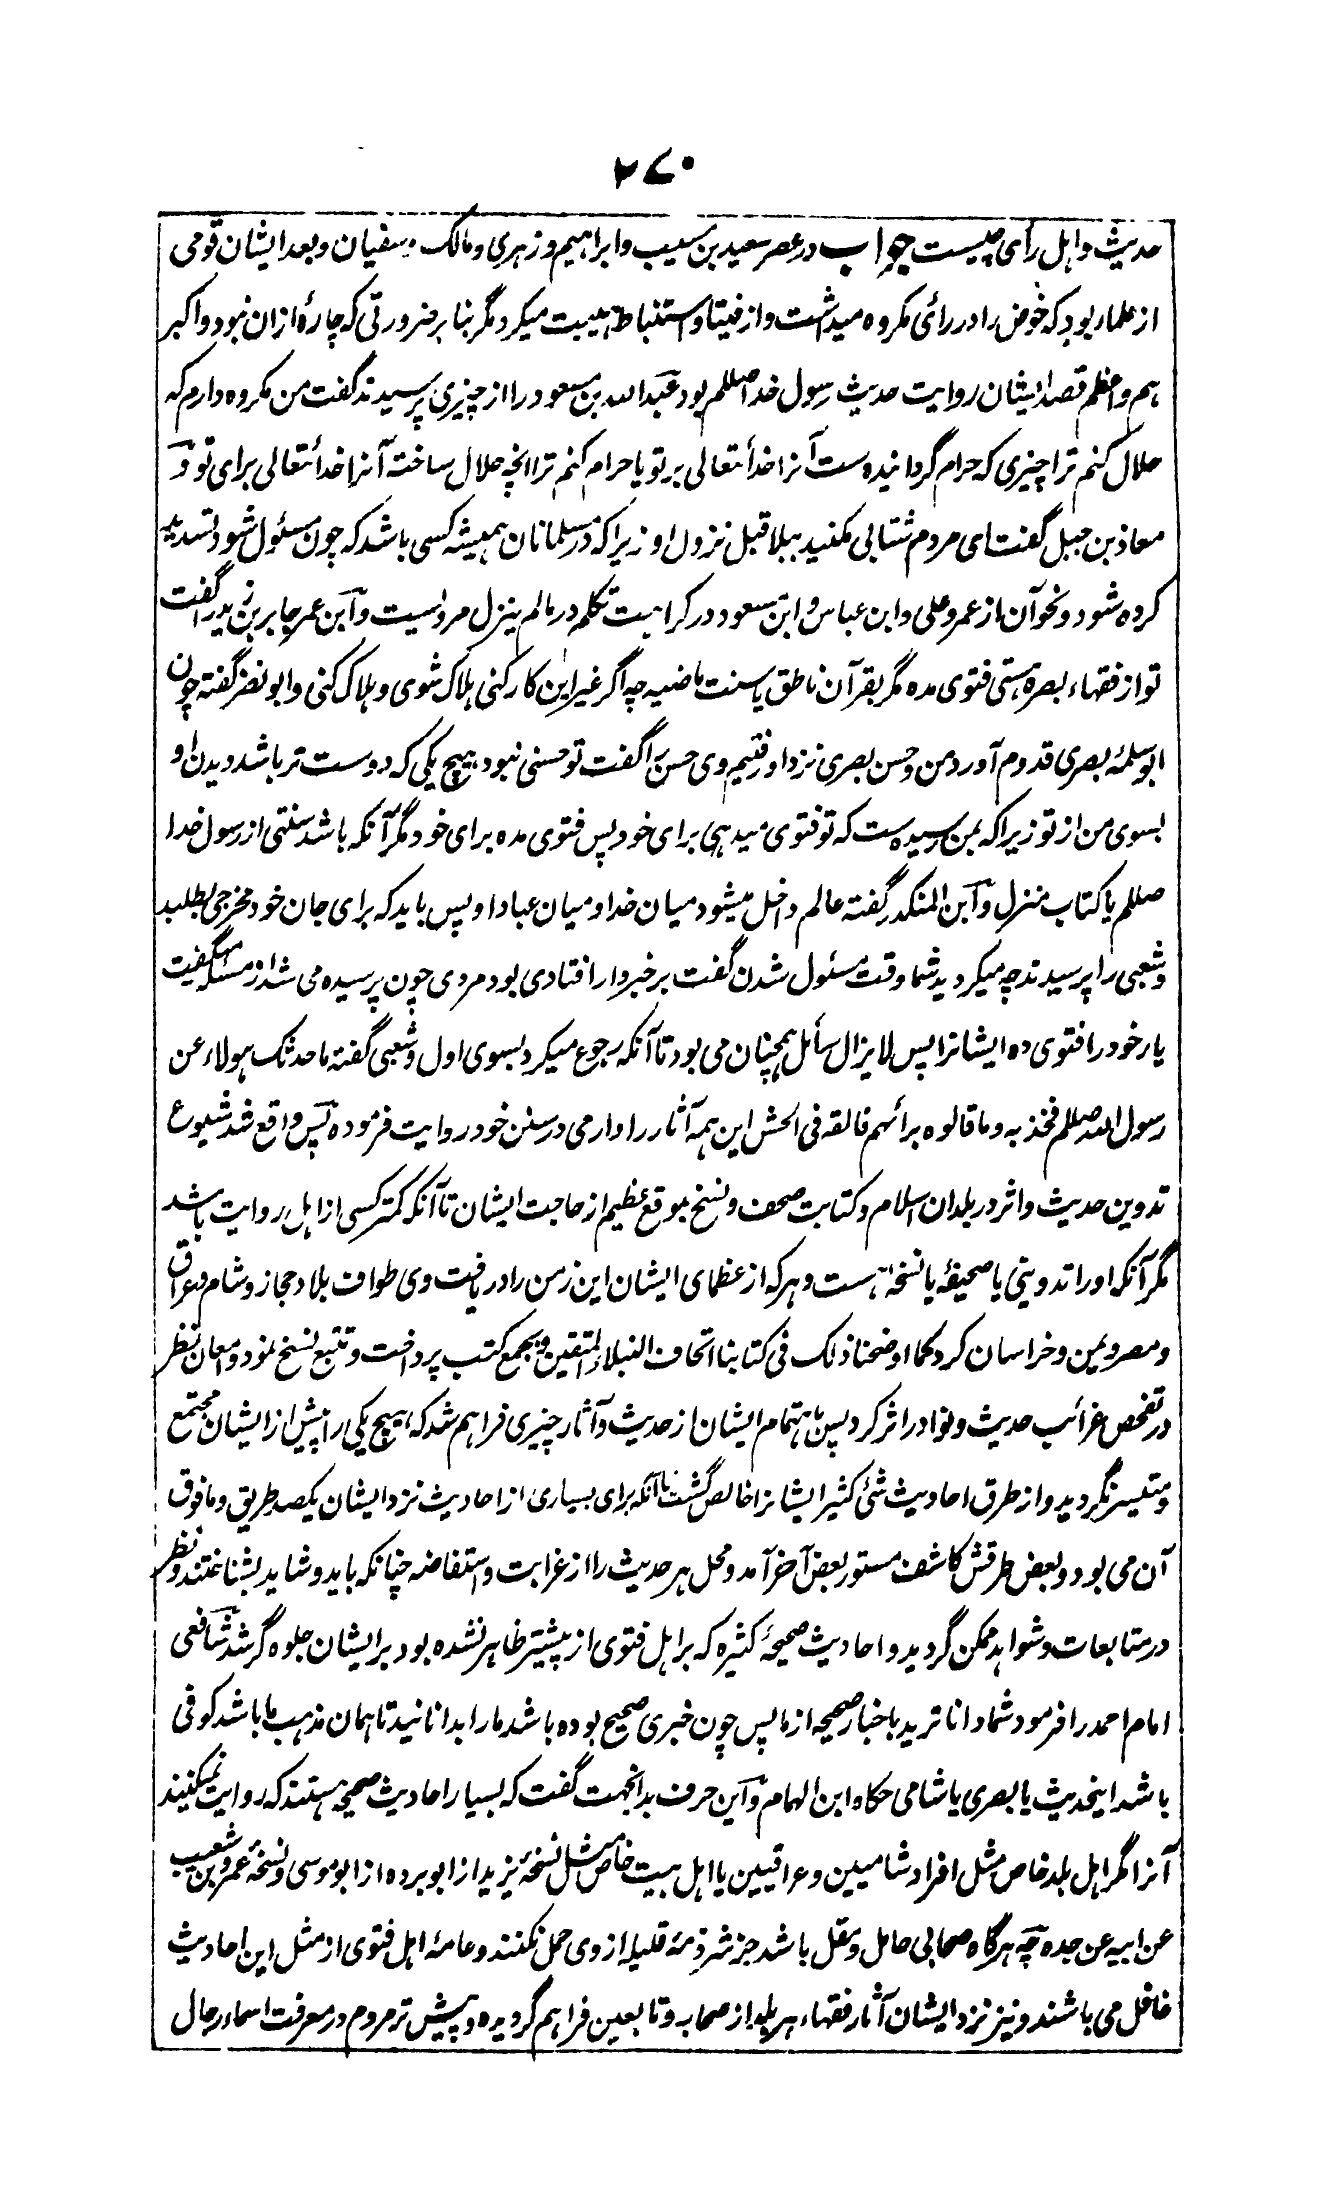 ۲۷۰
حدیث و اہل رأی چیست جواب در عصر سعید بن مسیب و ابراہیم و زہری و مالک و سفیان و بعد ایشان قومی
از علماء بود کہ خوض را در رائی مکروہ میداشت و از فتیا و استنباط ہیبت میکرد مگر بنا بر ضرورتی کہ چارۂ ازان نبود و اکبر
ہم و اعظم قصد ایشان روایت حدیث رسول خدا صللم بود عبد اللہ بن مسعود را از چیزی پرسیدند گفت من مکروہ دارم کہ
حلال کنم ترا چیزی کہ حرام گردانیدہ ست آنرا خدا تعالی بر تو یا حرام کنم ترا انچہ حلال ساختہ آنرا خدا تعالی برای تو و
معاذ بن جبل گفت ای مردم شتابی مکنید ببلا قبل نزول او زیرا کہ در مسلمانان ہمیشہ کسی باشد کہ چون مسئول شود تسدید
کردہ شود و نحو آن از عمر و علی و ابن عباس و ابن مسعود در کراہت تکلم در مالم ینزل مرویست و ابن عمر جابر بن زید را گفت
تو از فقہاء بصرہ ہستی فتوی مدہ مگر بقرآن ناطق یا سنت ماضیہ چہ اگر غیر این کار کنی ہلاک شوی و ہلاک کنی و ابو نضر گفتہ چون
ابو سلمۂ بصری قدوم آورد من و حسن بصری نزد او رفتیم وی حسن را گفت تو حسنی نبود ہیچ یکی کہ دوست تر باشد دیدن او
بسوی من از تو زیرا کہ بمن رسیدہ ست کہ تو فتوی میدہی برای خود پس فتوی مدہ برای خود مگر آنکہ باشد سنتی از رسول خدا
صللم یا کتاب منزل و ابن المنکدر گفتہ عالم داخل میشود میان خدا و میان عباد او پس باید کہ برای جان خود مخرجی بطلبد
و شعبی را پرسیدند چہ میکردید شما وقت مسئول شدن گفت بر خبردار افتادی بود مردی چون پرسیدہ می شد از مسئلہ میگفت
یار خود را فتوی دہ ایشانرا پس لایزال سائل ہمچنان می بود تا آنکہ رجوع میکرد بسوی اول و شعبی گفتہ ما حدثک ہولاء عن
رسول اللہ صللم فخذ بہ و ما قالوہ برائہم فالقہ فی الحش این ہمہ آثار را دارمی در سنن خود روایت فرمودہ پس واقع شد شیوع
تدوین حدیث و اثر در بلدان اسلام و کتابت صحف و نسخ بموقع عظیم از حاجت ایشان تا آنکہ کمتر کسی از اہل روایت باشد
مگر آنکہ او را تدوینی یا صحیفۂ یا نسخہ ہست و ہر کہ از عظمای ایشان این زمن را دریافت وی طواف بلاد حجاز و شام و عراق
و مصر و یمن و خراسان کرد کما اوضحنا ذلک فی کتابنا اتحاف النبلاء المتقین و بجمع کتب پرداخت و تتبع نسخ نمود و امعان نظر
در تفحص غرائب حدیث و نوادر اثر کرد پس باہتمام ایشان از حدیث و آثار چیزی فراہم شد کہ ہیچ یکی را پیش از ایشان مجتمع
و متیسر نگردید و از طرق احادیث شئ کثیر ایشانرا خالص گشت تا آنکہ برای بسیاری از احادیث نزد ایشان یکصد طریق و مافوق
آن می بود و بعض طرقش کاشف مستور بعض آخر آمد و محل ہر حدیث را از غرابت و استفاضہ چنانکہ باید و شاید بشناختند و نظر
در متابعات و شواہد ممکن گردید و احادیث صحیحۂ کثیرہ کہ بر اہل فتوی از پیشتر ظاہر نشدہ بود بر ایشان جلوہ گر شد شافعی
امام احمد را فرمود شما داناترید باخبار صحیحہ از ما پس چون خبری صحیح بودہ باشد ما را بدانانید تا ہمان مذہب ما باشد کوفی
باشد اینحدیث یا بصری یا شامی حکاہ ابن الہمام و این حرف بدانجہت گفت کہ بسیار احادیث صحیحہ ہستند کہ روایت نمیکنند
آنرا مگر اہل بلد خاص مثل افراد شامیین و عراقیین یا اہل بیت خاص مثل نسخۂ یزید از ابو بردہ از ابو موسی و نسخۂ عمرو بن شعیب
عن ابیہ عن جدہ چہ ہرگاہ صحابی حامل و مقل باشد جز شرذمۂ قلیلہ از وی حمل نکنند و عامۂ اہل فتوی از مثل این احادیث
غافل می باشند و نیز نزد ایشان آثار فقہاء ہر بلد از صحابہ و تابعین فراہم گردیدہ و پیش تر مردم در معرفت اسماء رجال